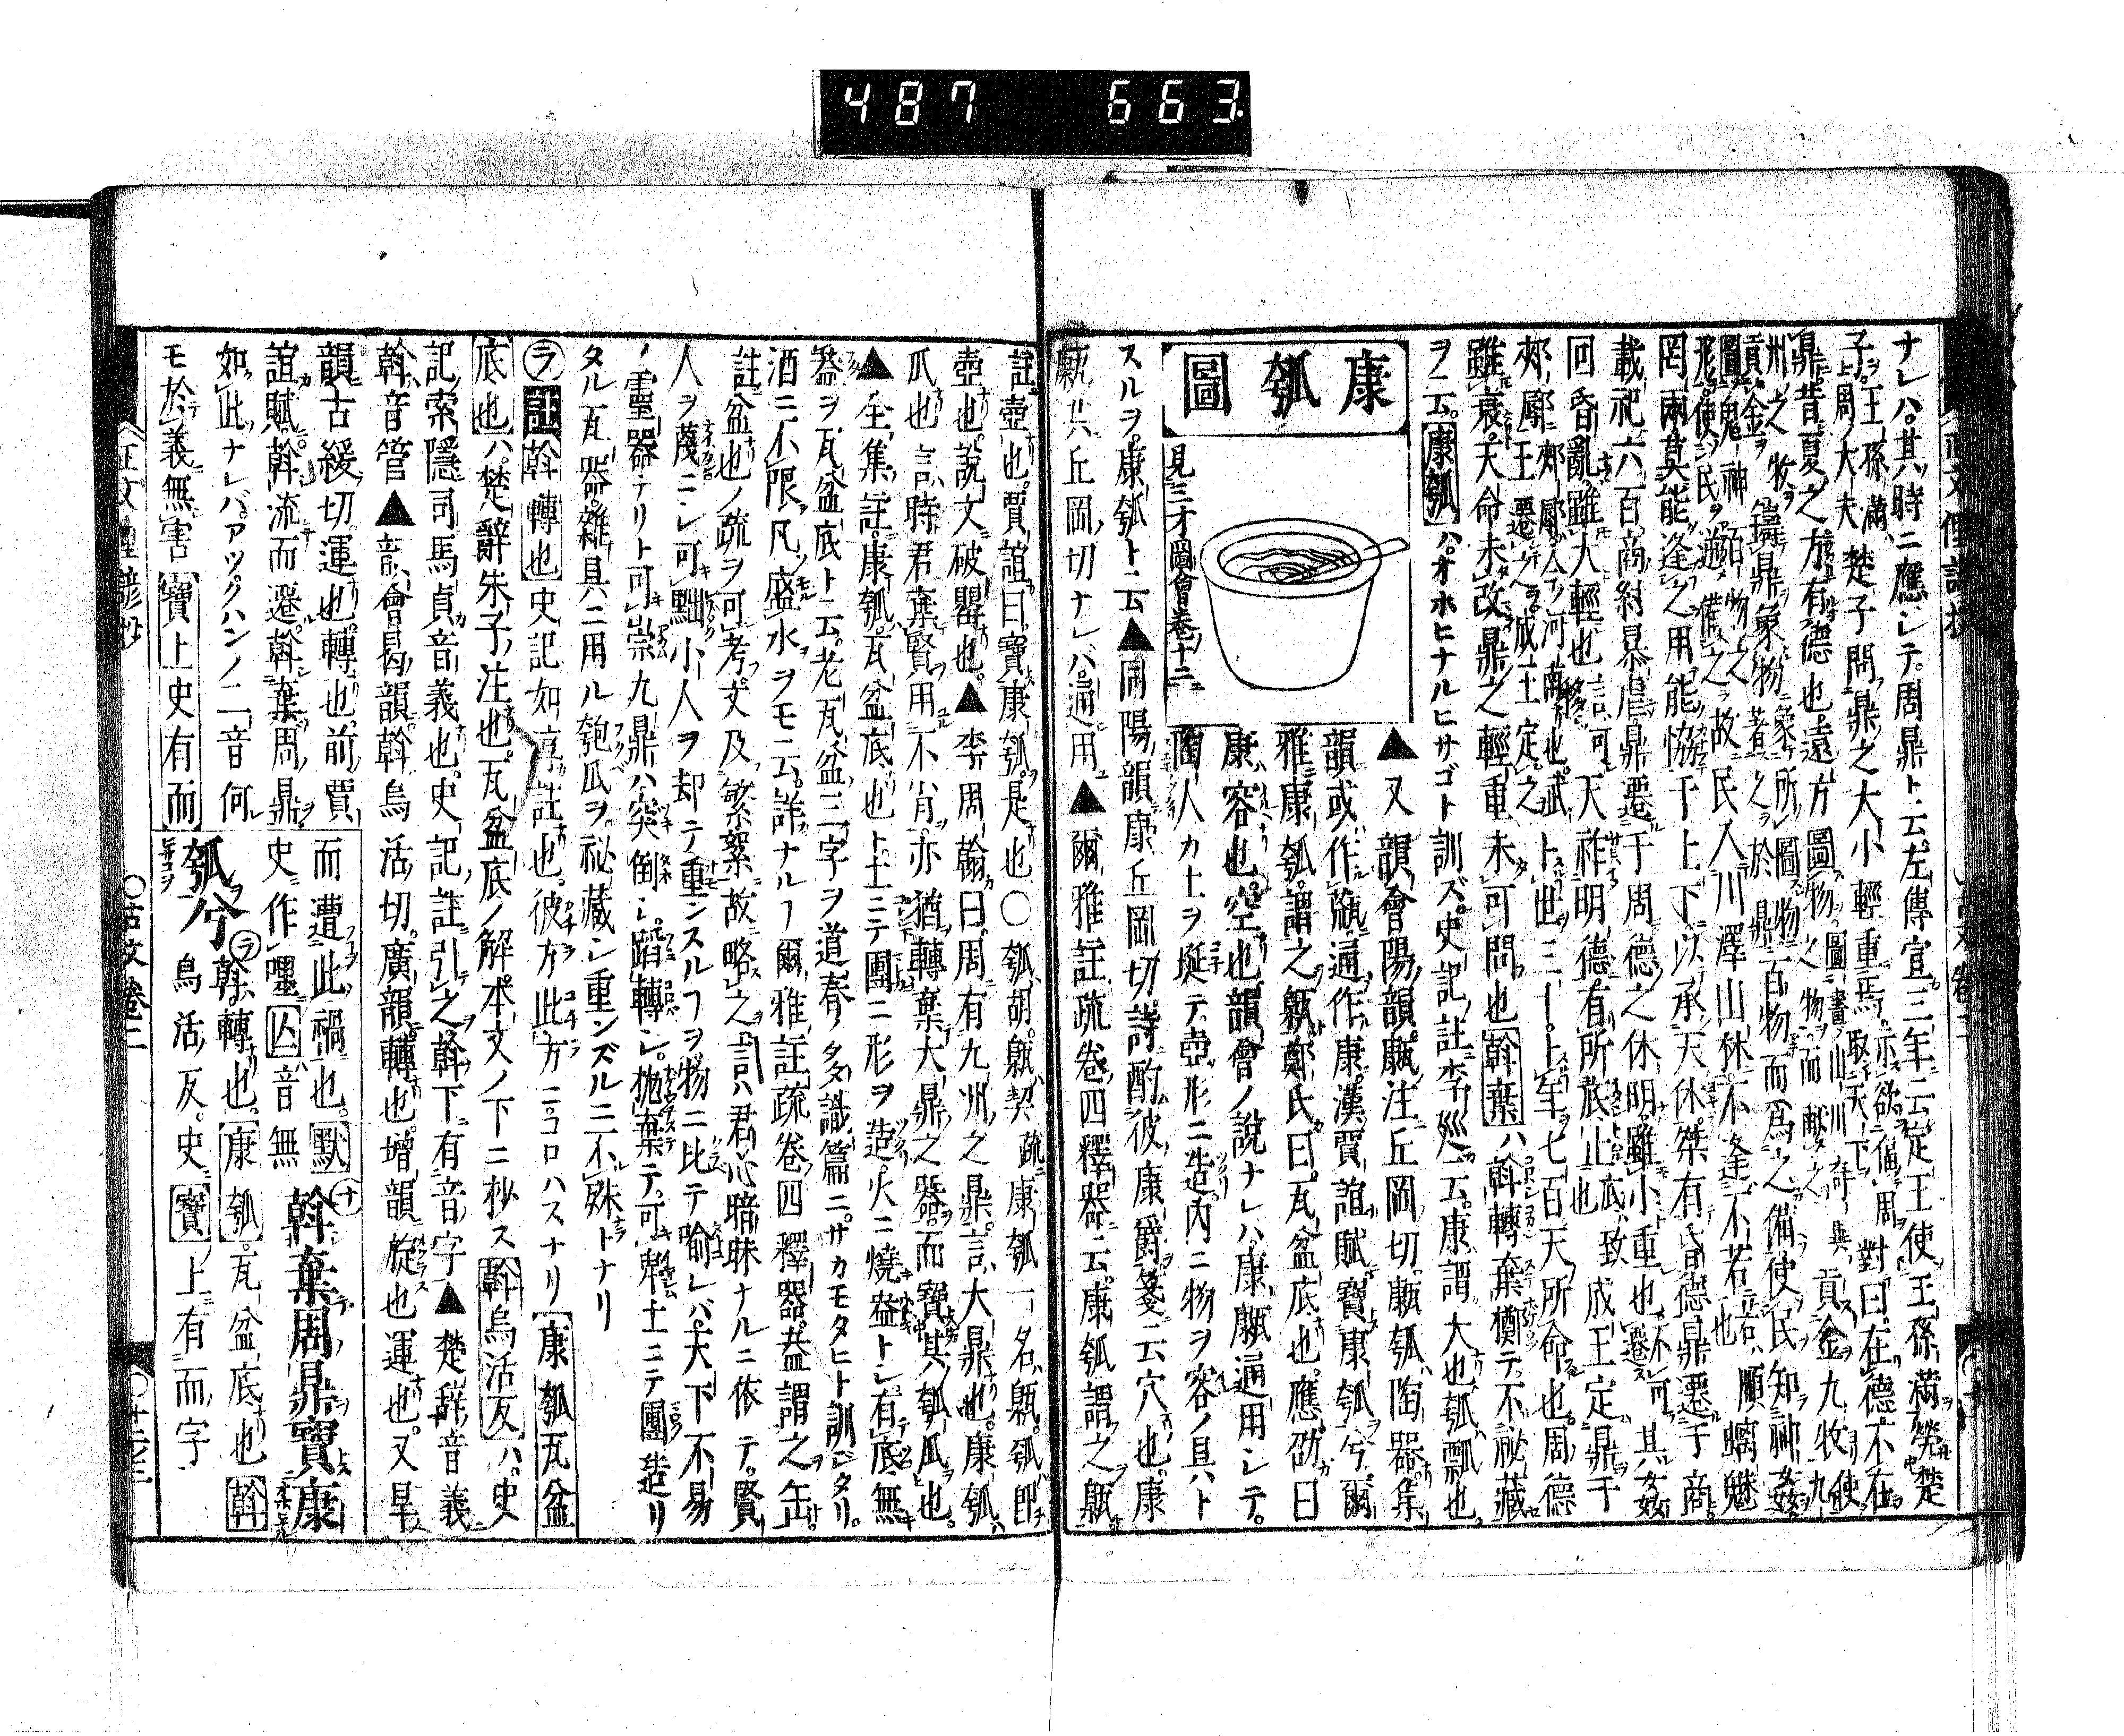 487 663
ナレハ其時ニ應シテ周鼎ト云左傳宣三年ニ云定王使王孫滿勞楚
子王孫滿周大夫楚子問鼎之大小輕重焉示欲偪周取天下對曰在德不在
鼎昔夏之方有德也遠方圖物圖畫山川奇異之物而獻之貢金九牧使九
州之牧貢金鑄鼎象物象所圖物著之於鼎百物而爲之備使民知神姦
圖鬼神百物之形使民逆備之故民入川澤山林不逢不若若順也螭魅
罔兩莫能逢之用能協于上下以承天休桀有昏德鼎遷于商
載祀六百商紂暴虐鼎遷于周德之休明雖小重也不可遷其姦
回昏亂雖大輕也言可移天祚明德有所底止底致也成王定鼎于
郟鄏郟鄏今河南也武王遷之成王定之卜世三十卜年七百天所命也周德
雖衰天命未改鼎之輕重未可問也斡棄ハ斡轉棄擲テ不祕藏
ヲ云康瓠ハオホヒナルヒサゴト訓ズ史記註李巡云康謂大也瓠瓢也
康瓠圖
見三才圖會卷十二
▲又韻會陽韻㼹注丘岡切㼹瓠陶器集
韻或作𤮊通作康漢賈誼賦寶康瓠兮爾
雅康瓠謂之甈鄭氏曰瓦盆底也應劭曰
康容也空也韻會ノ說ナレハ康㼹通用シテ
陶人カ土ヲ埏テ壺形ニ造内ニ物ヲ容ノ具ハト
スルヲ康瓠ト云▲同陽韻康丘岡切詩酌彼康爵箋云穴也康
㼹共丘岡切ナレバ通用▲爾雅註疏卷四釋器云康瓠謂之甈
註壺也賈誼曰寶康瓠是也〇瓠胡甈契疏康瓠一名甈瓠即
壺也說文破罌也▲李周翰曰周有九州之鼎言大鼎也康瓠
瓜也言時君棄賢用不肖亦猶轉棄大鼎之器而寶其瓠瓜也
▲全集註康瓠瓦盆底也ト土ニテ團ニ形ヲ造火ニ燒盎トシ有底無
盎ヲ瓦盆底ト云老瓦盆三字ヲ道春多識篇ニサカモタヒト訓ジタリ
酒ニ不限凡盛水ヲモ云詳ナルヿ爾雅註疏卷四釋器盎謂之缶
註盆也ノ疏ヲ可考文及繁絮故略之言ハ君心暗昧ナルニ依テ賢
人ヲ蔑ニシ可黜小人ヲ却テ重ンスルヿヲ物ニ比テ喩レバ天下不易
ノ靈器テリト可崇九鼎ハ突倒シ蹈轉シ拋棄テ可卑土ニテ團造リ
タル瓦器雜具ニ用ル匏瓜ヲ祕藏シ重ンズルニ不殊トナリ
ラ註斡轉也史記如淳註也彼方此方ニコロハスナリ康瓠瓦盆
底也ハ楚辭朱子注也瓦盆底ノ解本文ノ下ニ抄ス斡烏活反ハ史
記索隱司馬貞音義也史記註引之斡下有音字▲楚辭音義
斡音管▲韻會曷韻斡烏活切廣韻轉也增韻旋也運也又旱
韻古緩切運也轉也前賈誼賦斡流而遷斡棄周鼎
如此ナレバアツクハンノ二音何
モ於義無害寶上史有而
而遭此禍也默十斡棄周鼎寶康
史作嚜囚音無
瓠兮ラ斡轉也康瓠瓦盆底也斡
烏活反史寶上有而字
古文卷二